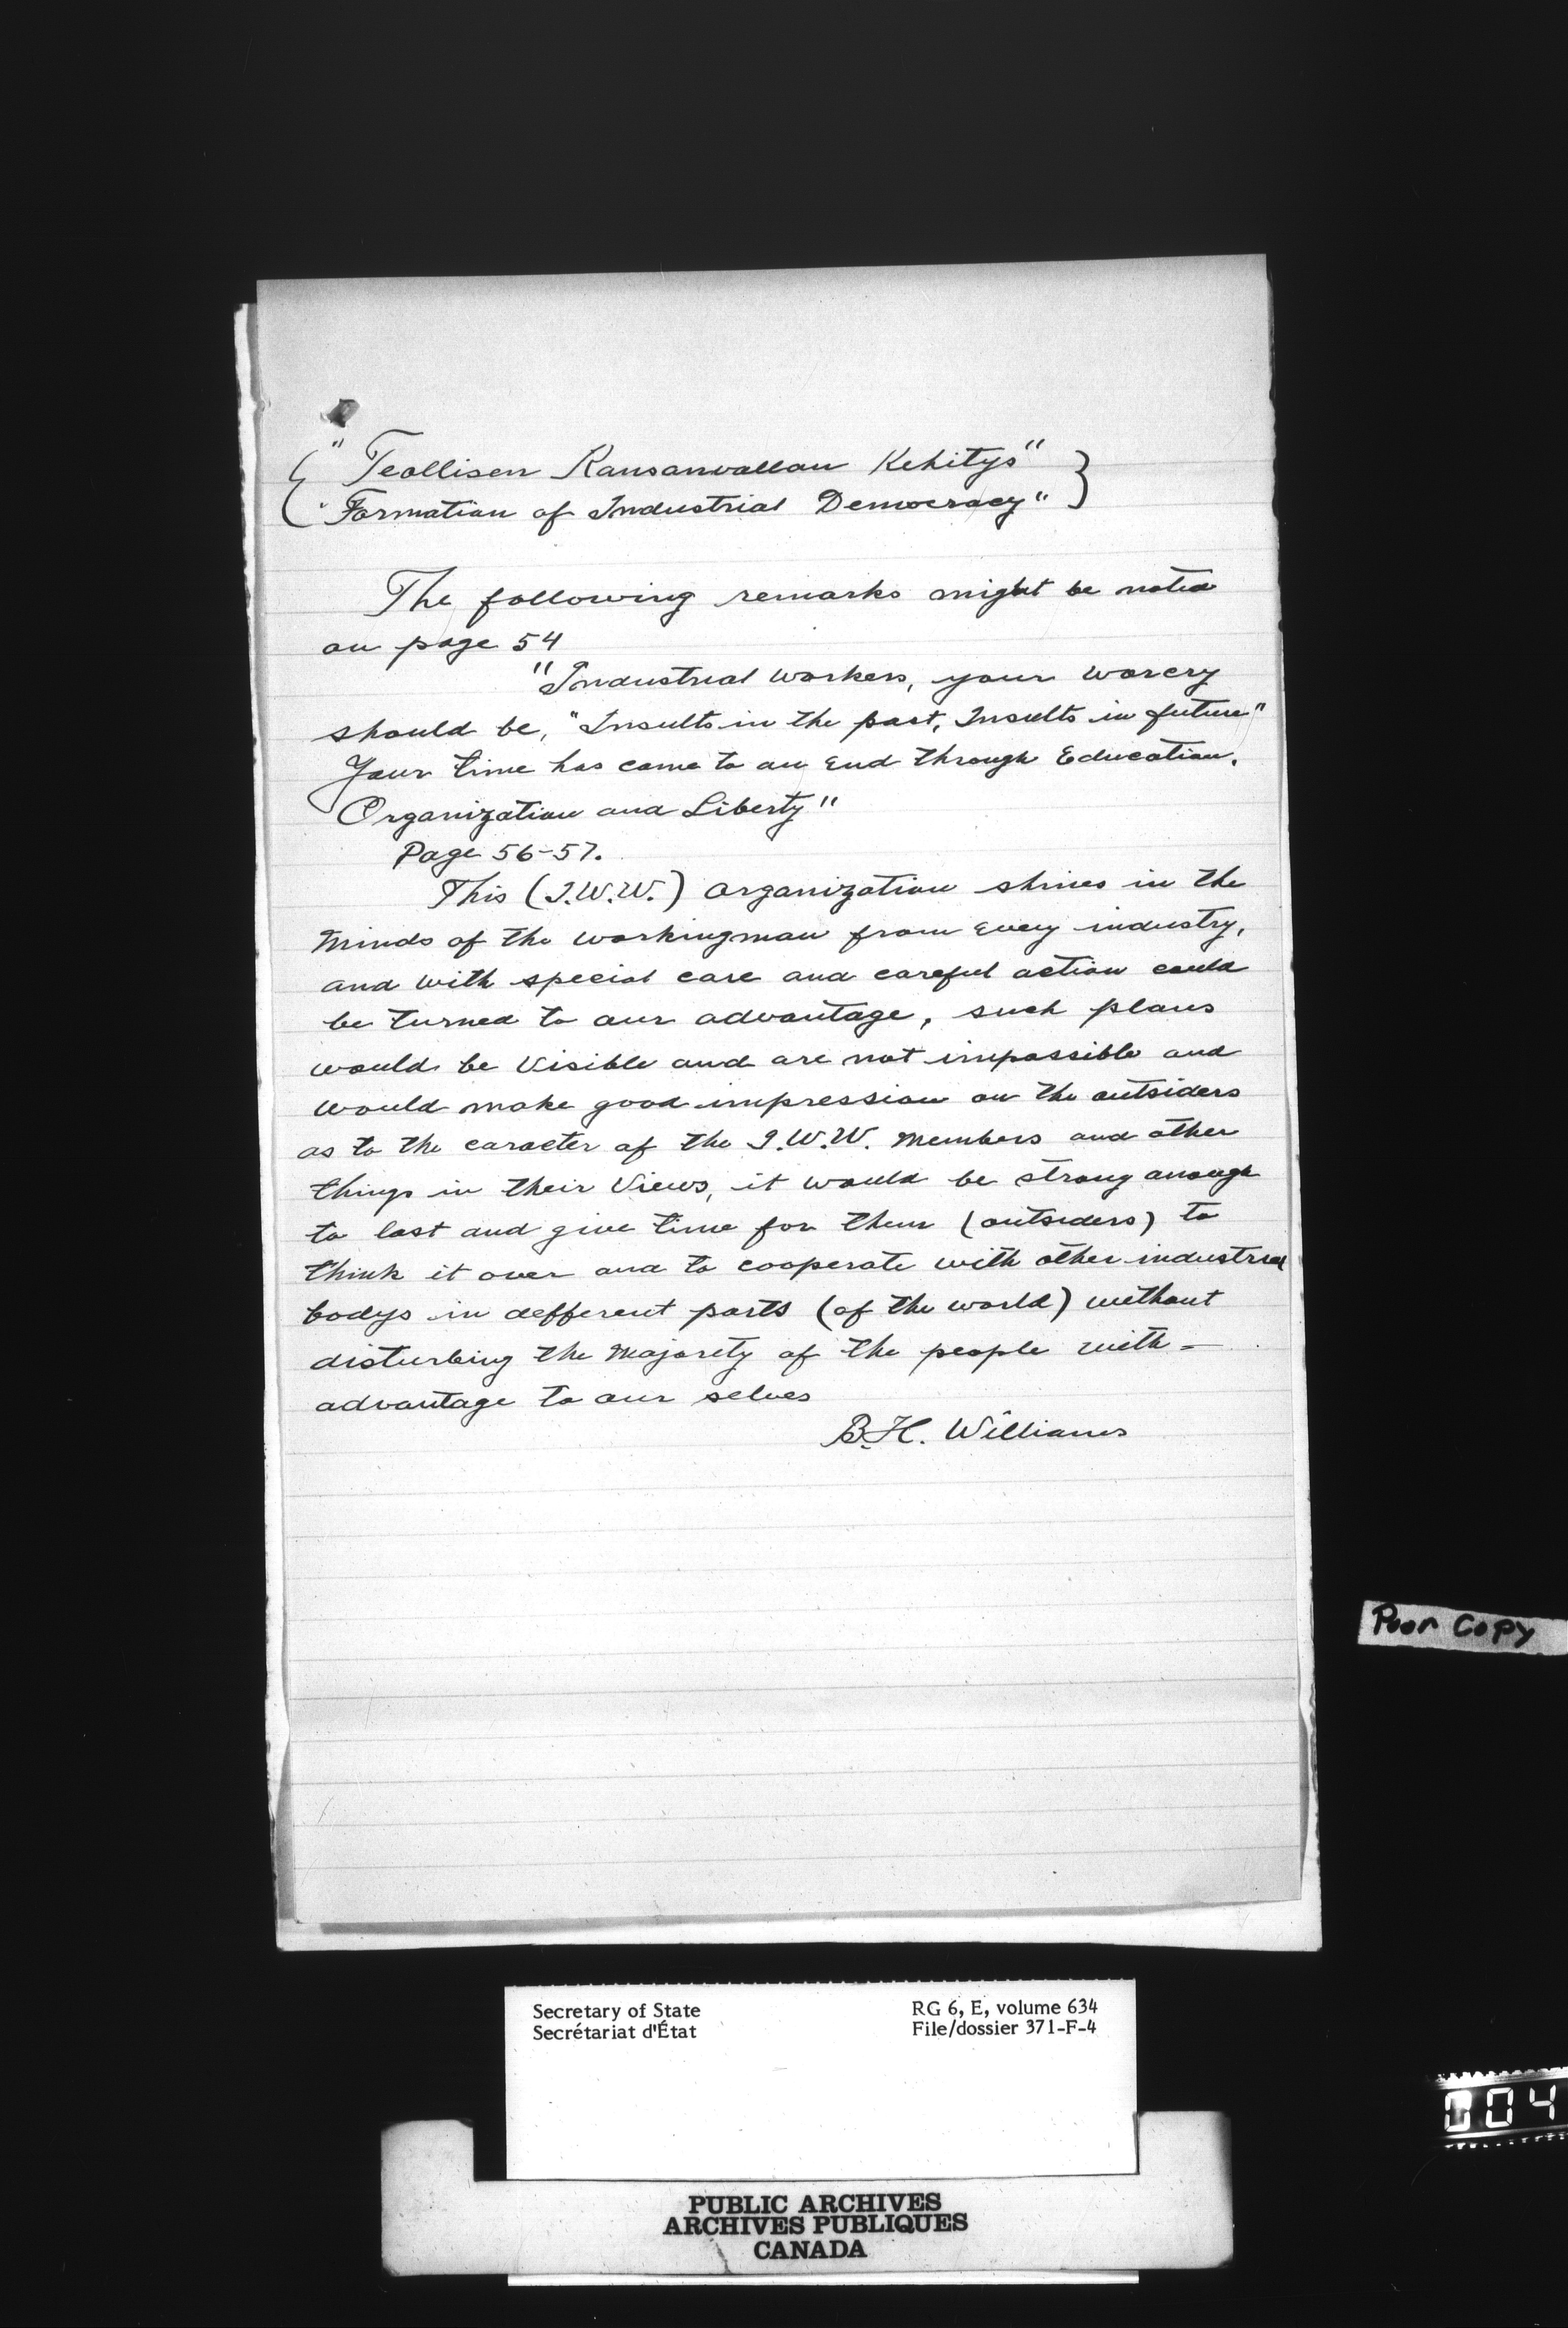 {"Teollisen Kansanvallan Kehitys"}
"Formation of Industrial Democracy"
The following remarks might be noted
on page 54
"Industrial workers, your warcry
should be, "Insults in the past, Insults in future"
Your time has come to an End through Education,
Organization and Liberty"
Page 56-57.
This (I.W.W.) organization shines in the
Minds of the workingman from every industry,
and with special care and careful action could
be turned to our advantage, such plans
would be Visible and are not impossible and
would make good impression on the outsiders
as to the caracter of the I.W.W. Members and other
things in their Views, it would be strong anough
to last and give time for them (outsiders) to
think it over and to cooperate with other industrial
bodys in defferent parts (of the world) without
disturbing the Majorety of the people with-
advantage to our selves
B.H. Williams
Poor Copy
Secretary of State
Secrétariat d'État
RG 6, E, volume 634
File/dossier 371-F-4
004
PUBLIC ARCHIVES
ARCHIVES PUBLIQUES
CANADA